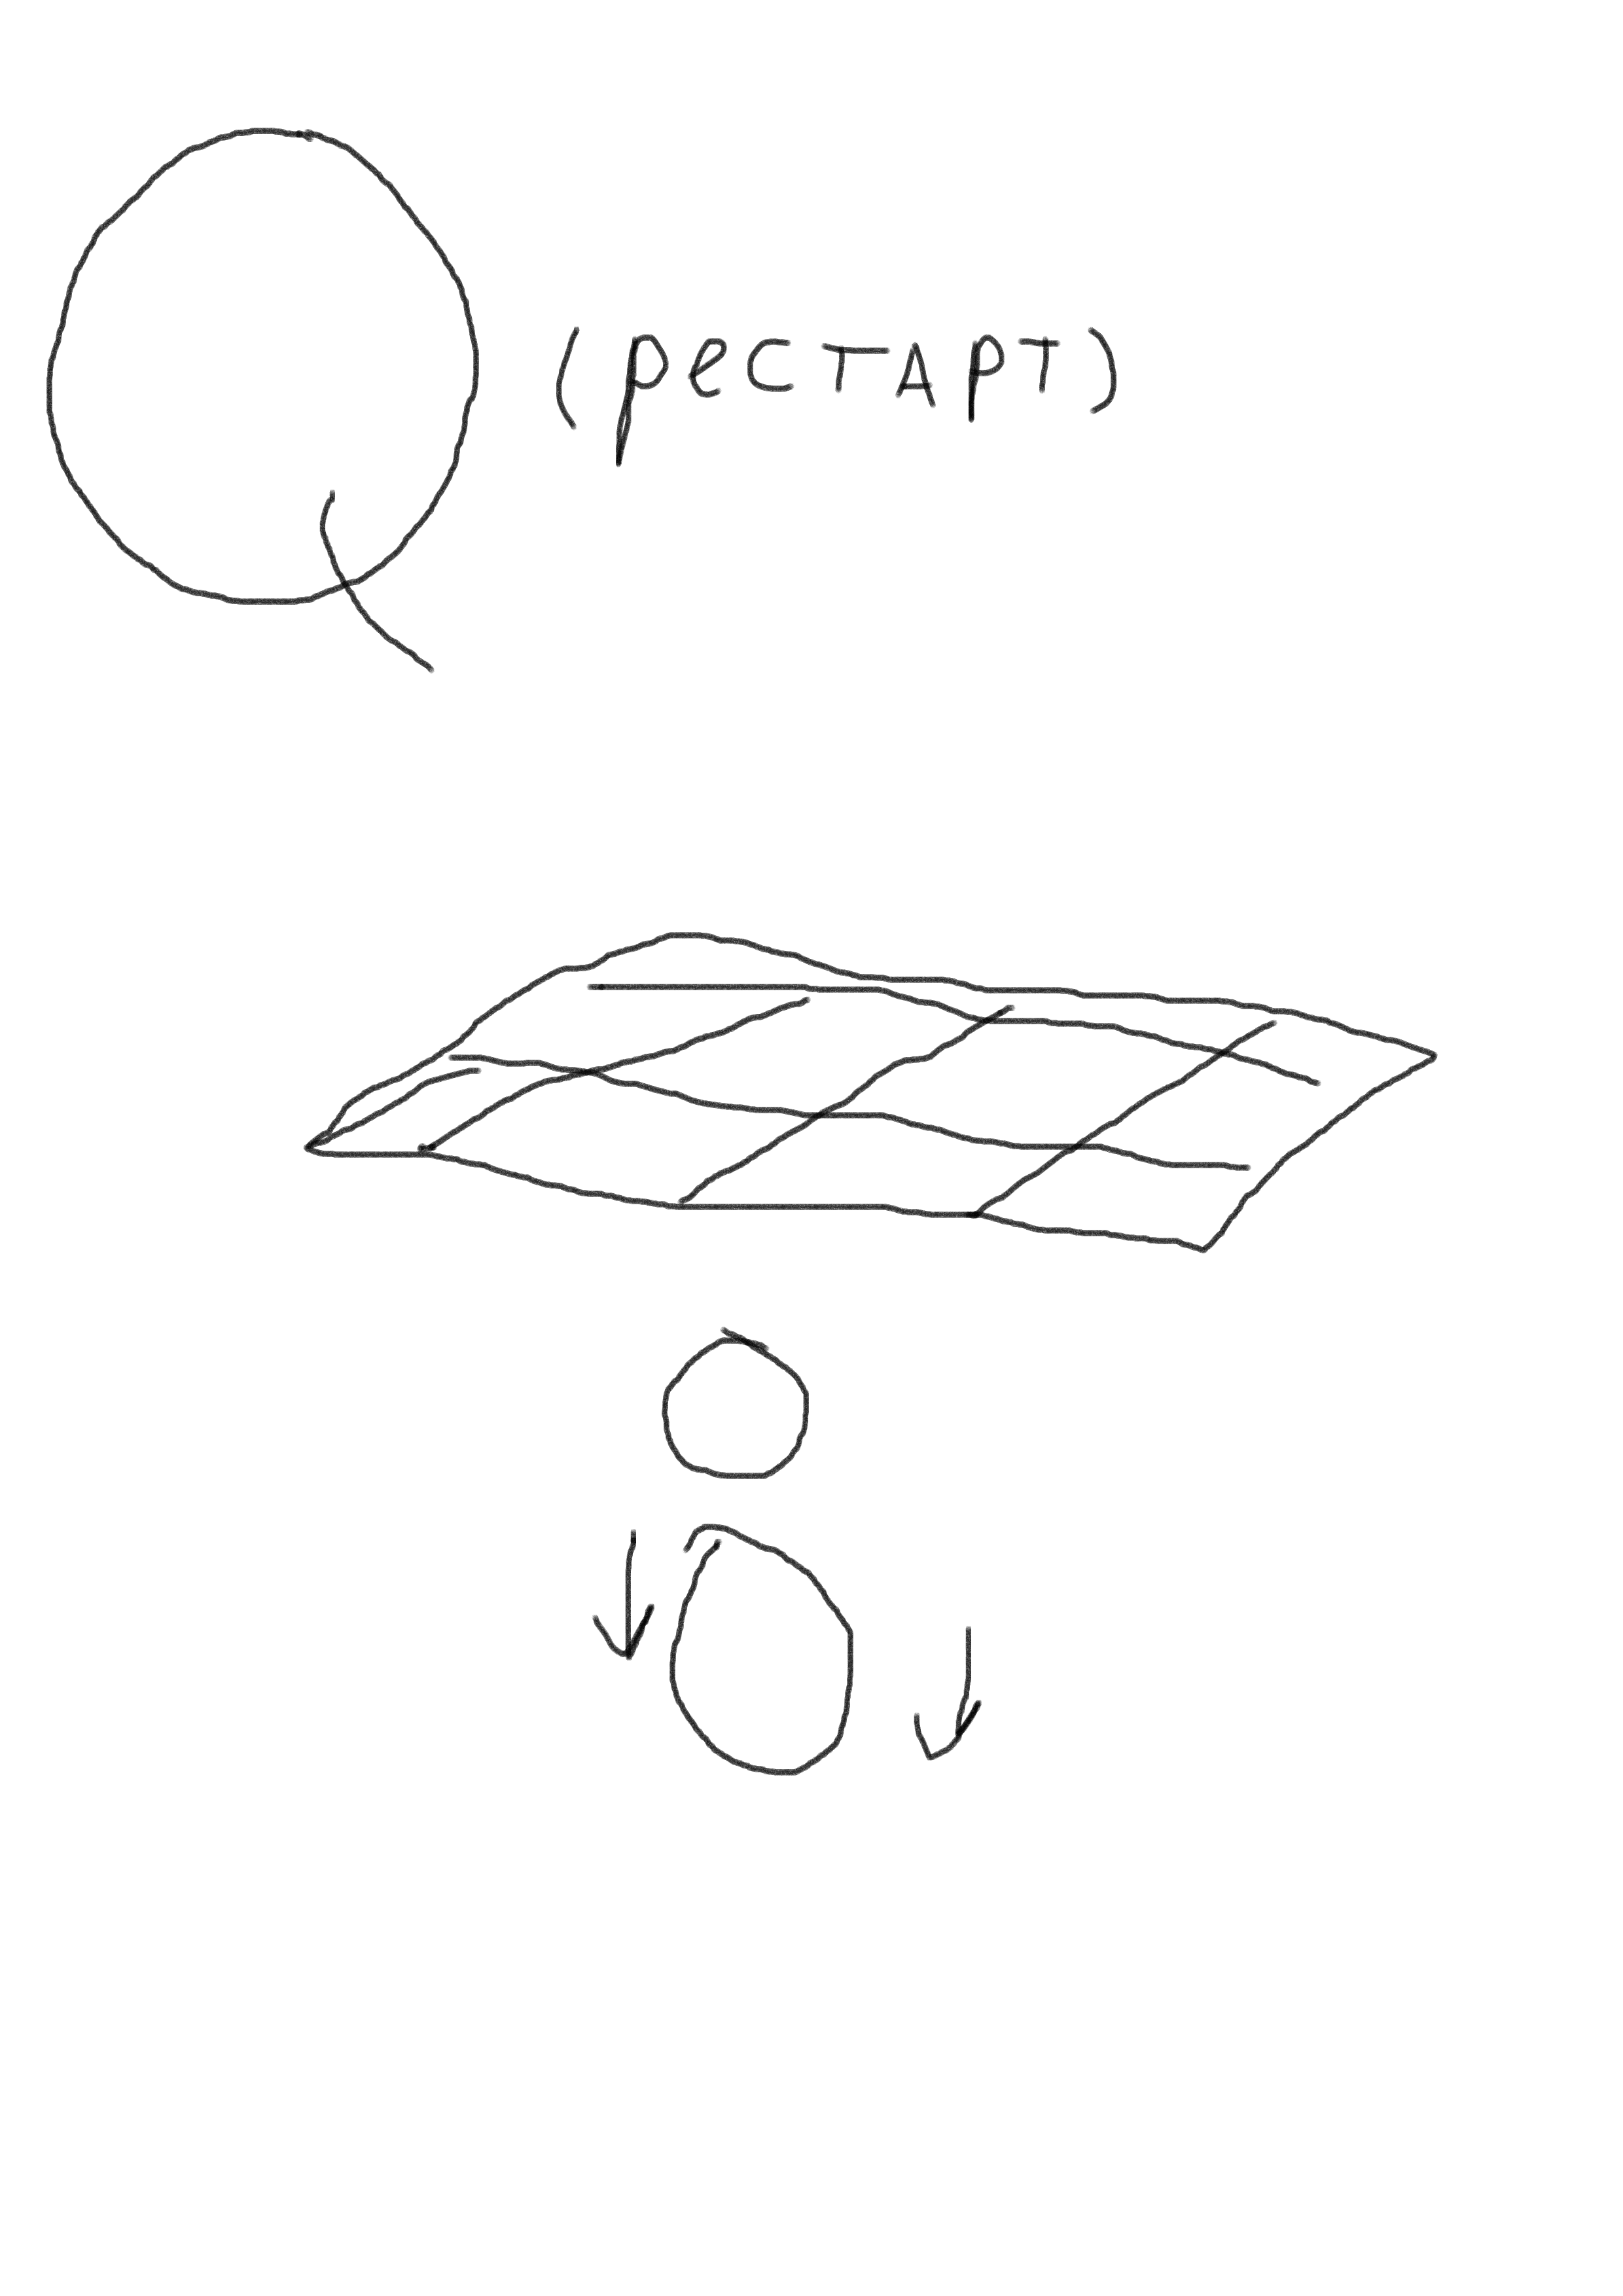 Q (рестарт)